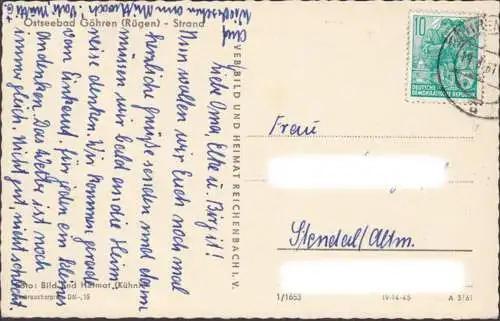 Ostseebad Göhren (Rügen) - Strand
Auf
Wiedersehen am Mittwoch
Liebe Oma, Elke u. Birgit!
Nun wollen wir Euch noch mal
herzliche Grüße senden und dann
müssen wir bald an die Heim-
reise denken. Wir kommen gerade
vom Einkauf. Für jeden ein kleines
Andenken. Das Wetter ist noch
immer gleich. Nicht gut, nicht schlecht
Foto: Bild und Heimat (Kühn)
Verbraucherpreis DM -,15
VEB BILD UND HEIMAT REICHENBACH I. V.
10
DEUTSCHE
DEMOKRATISCHE REPUBLIK
Frau
Stendal/Altm.
1/1653
IV-14-45
A 3/61